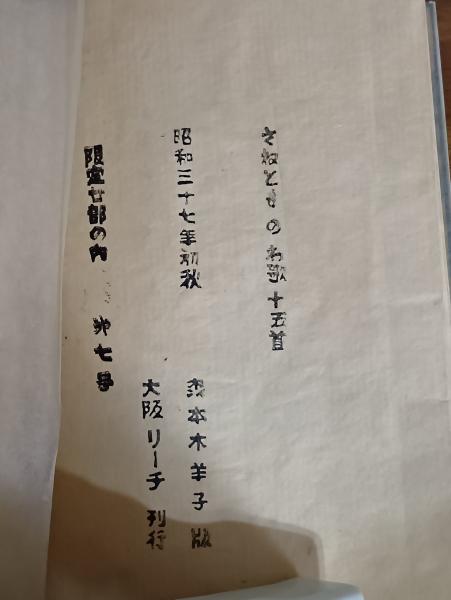 さねとものわ歌十五首
昭和三十七年初秋
本木羊子版
大阪リーチ刊行
限定廿部の内 第七号